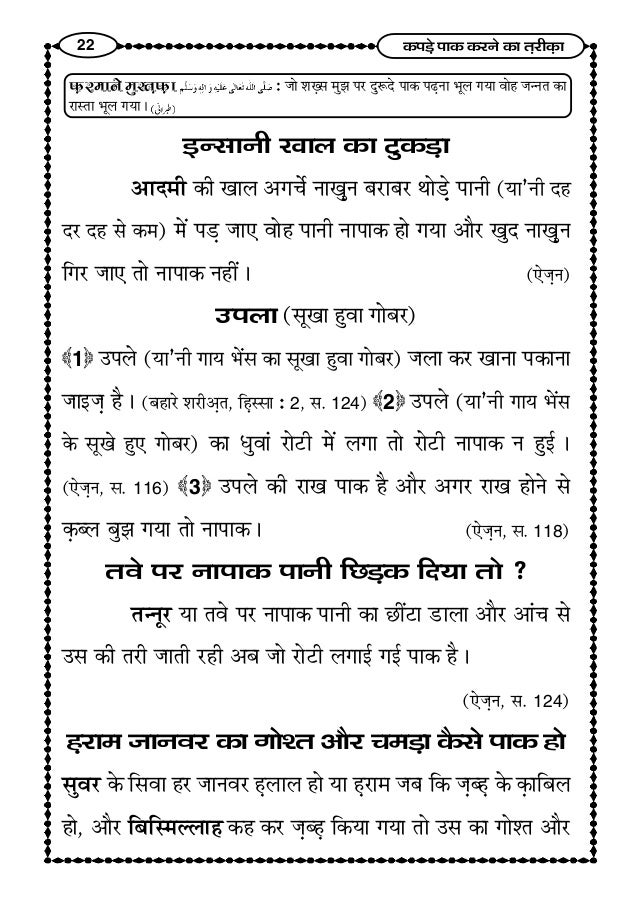 22 कपड़े पाक करने का त़रीक़ा
फ़रमाने मुस्त़फ़ा صَلَّى اللهُ تَعَالٰى عَلَيْهِ وَاٰلِهٖ وَسَلَّم : जो शख़्स मुझ पर दुरूदे पाक पढ़ना भूल गया वोह जन्नत का
रास्ता भूल गया । (طبرانی)
इन्सानी खाल का टुकड़ा
आदमी की खाल अगर्चे नाख़ुन बराबर थोड़े पानी (या'नी दह
दर दह से कम) में पड़ जाए वोह पानी नापाक हो गया और खुद नाख़ुन
गिर जाए तो नापाक नहीं । (ऐज़न)
उपला (सूखा हुवा गोबर)
﴾1﴿ उपले (या'नी गाय भेंस का सूखा हुवा गोबर) जला कर खाना पकाना
जाइज़ है । (बहारे शरीअ़त, हि़स्सा : 2, स. 124) ﴾2﴿ उपले (या'नी गाय भेंस
के सूखे हुए गोबर) का धुवां रोटी में लगा तो रोटी नापाक न हुई ।
(ऐज़न, स. 116) ﴾3﴿ उपले की राख पाक है और अगर राख होने से
क़ब्ल बुझ गया तो नापाक । (ऐज़न, स. 118)
तवे पर नापाक पानी छिड़क दिया तो ?
तन्नूर या तवे पर नापाक पानी का छींटा डाला और आंच से
उस की तरी जाती रही अब जो रोटी लगाई गई पाक है ।
(ऐज़न, स. 124)
ह़राम जानवर का गोश्त और चमड़ा कैसे पाक हो
सुवर के सिवा हर जानवर ह़लाल हो या ह़राम जब कि ज़ब्ह़ के क़ाबिल
हो, और बिस्मिल्लाह कह कर ज़ब्ह़ किया गया तो उस का गोश्त और